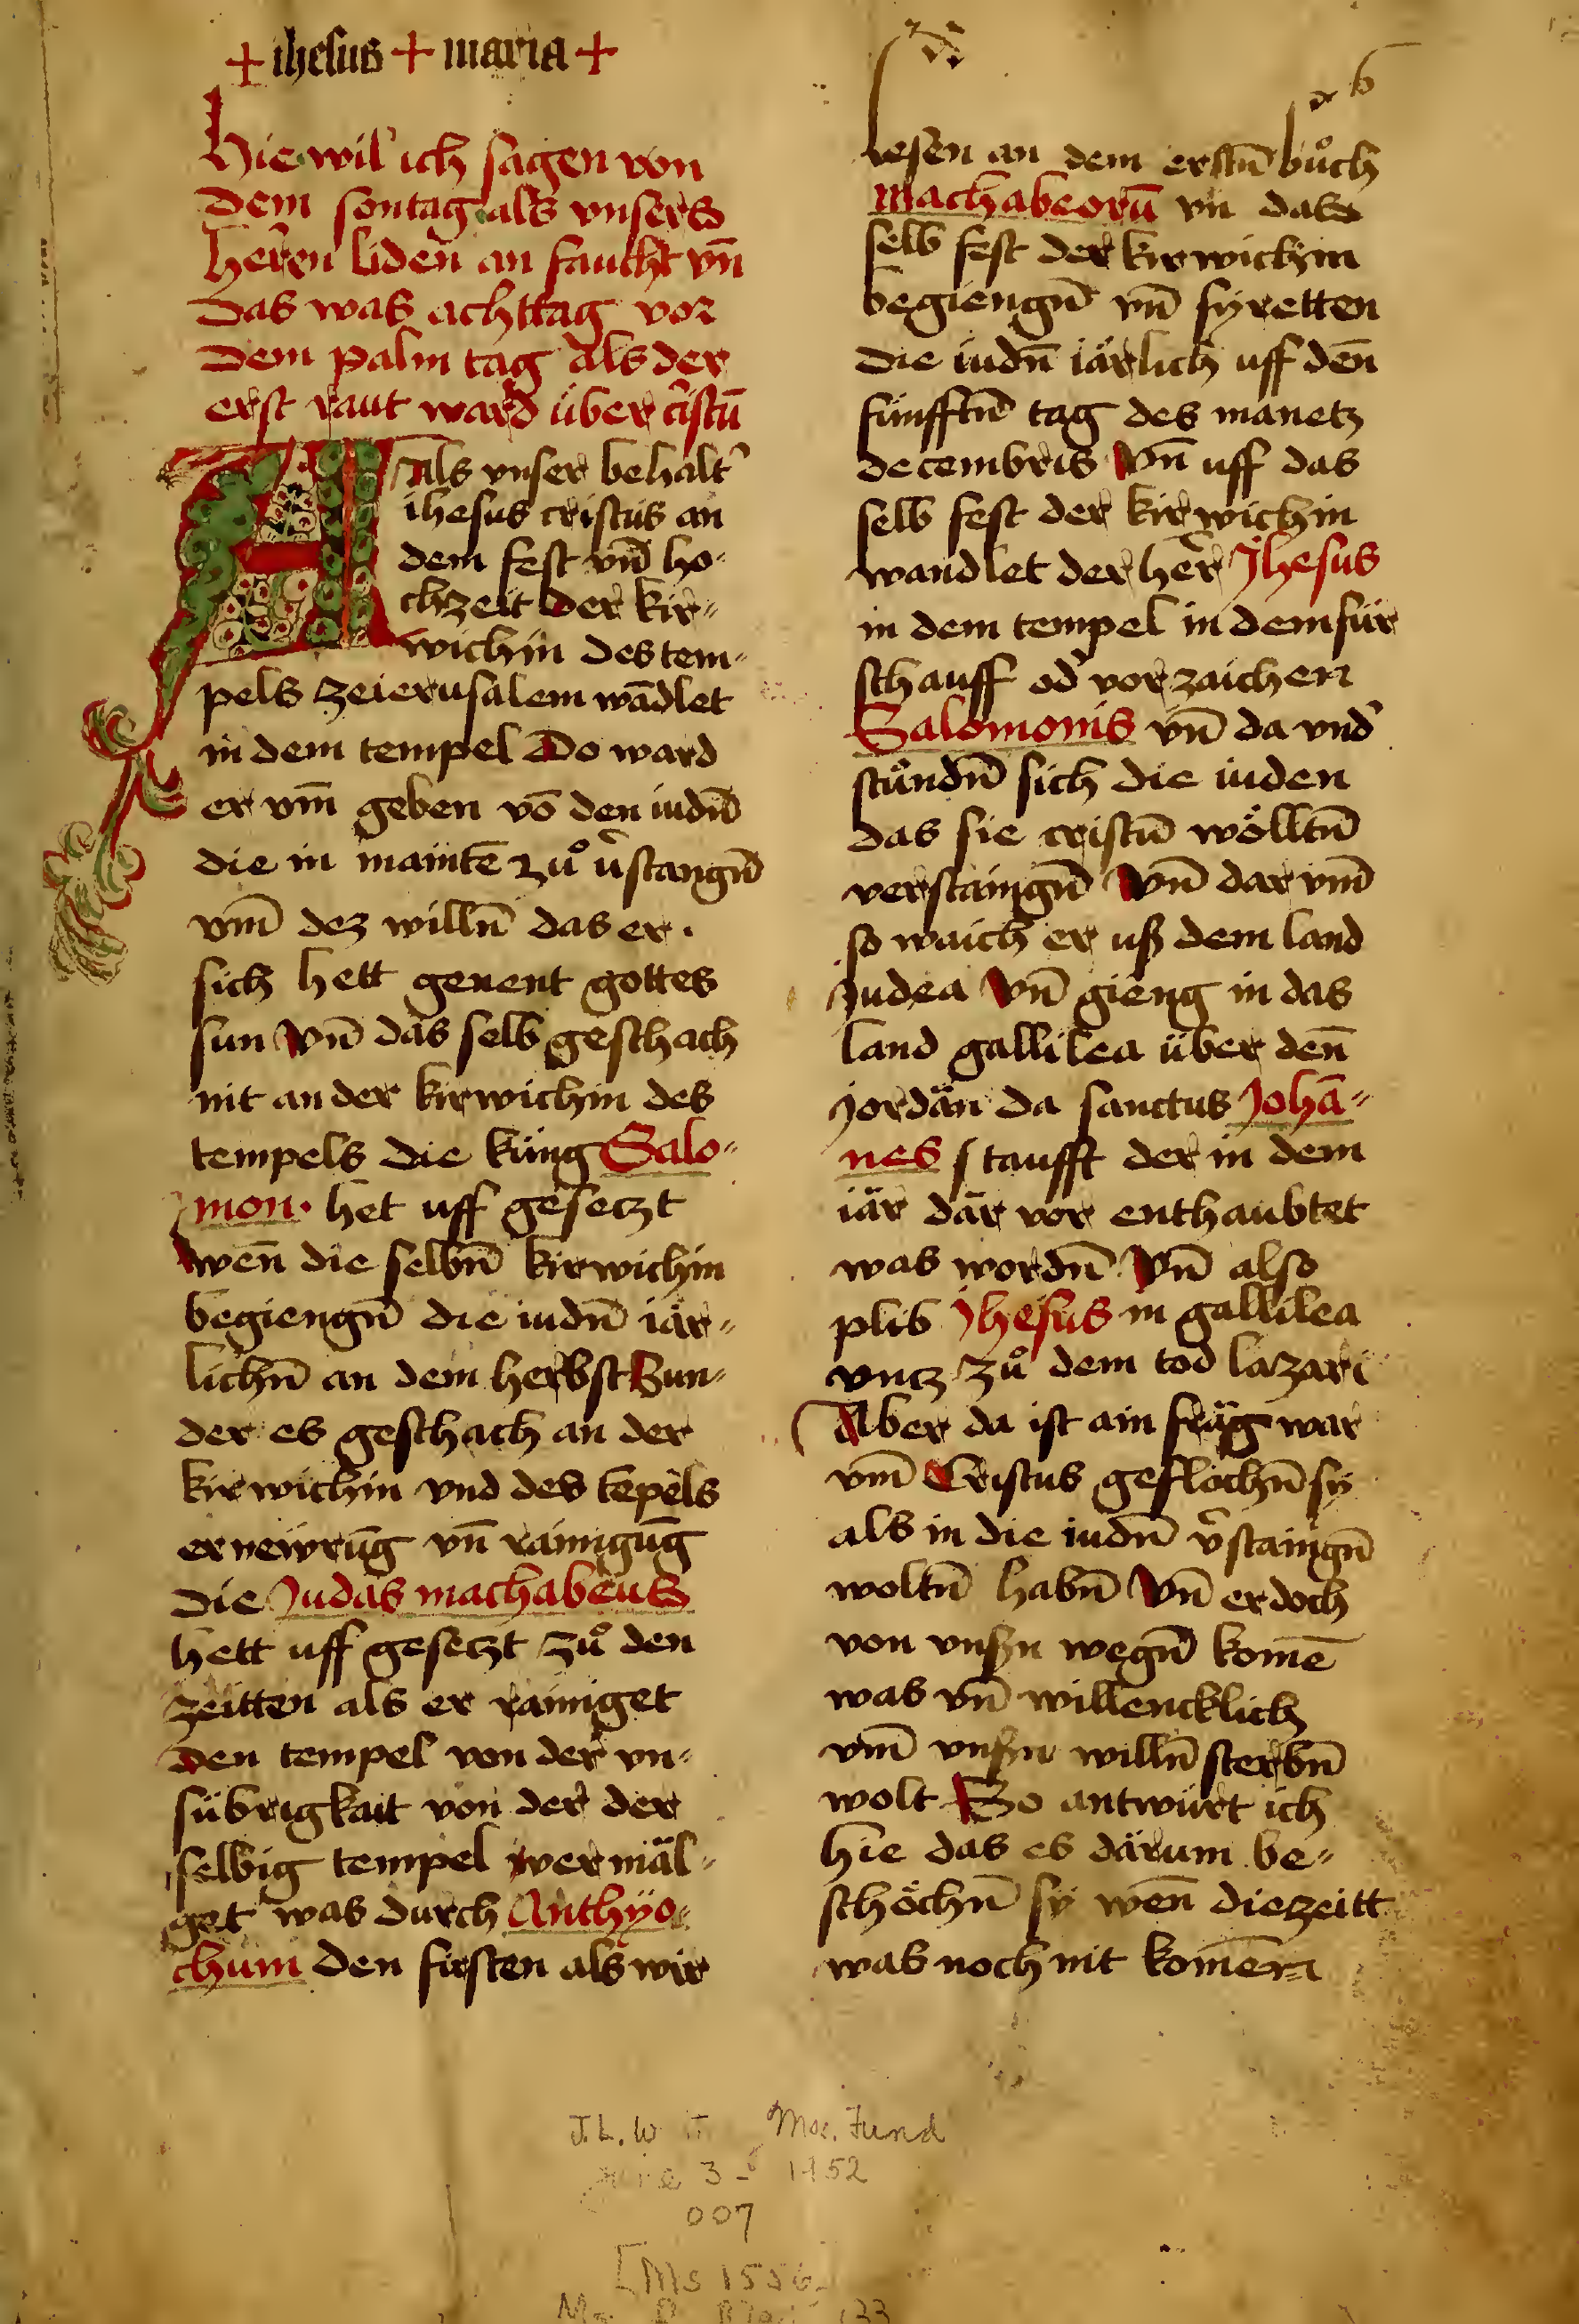 + ihesus + maria +
Hie wil ich sagen von
dem sontag als vnsers
herren liden an faucht vn̄
das was acht tag vor
dem palm tag als der
erst raut ward über cristū
Als vnser behalt᾽
ihesus cristus an
dem fest vn̄ ho-
chzeit der kir-
wichin des tem-
pels ze ierusalem wādlet
in dem tempel Do ward
er vm̄ geben vō den iudn̄
die in maintē zuͦ v᾽stangn̄
vm̄ dez willn̄ das er ·
sich hett genent gottes
sun Vn̄ das selb geschach
nit an der kirwichin des
tempels die küng Salo-
mon · het uff gesetzt
wen̄ die selbn̄ kirwichin
begiengn̄ die iudn̄ iär-
lichn̄ an dem herbst Sun-
der es geschach an der
kirwichin vnd des tēpels
ernewrūg vn̄ rainigūg
die Judas machabeus
hett uff gesetzt zuͦ den
zeitten als er rainiget
den tempel von der vn-
sübrigkait von der der
selbig tempel vermäl-
get was durch Anthyo-
chum den firsten als wir
lesen an dem erstn̄ buͦch
Machabeorū vn̄ das
selb fest der kirwichin
begiengn̄ vn̄ fyretten
die iudn̄ iärlich uff den̄
fünfftn̄ tag des manetz
decembris Vn̄ uff das
selb fest der kirwichin
wandlet der her᾽ Jhesus
in dem tempel in dem für
schauff od᾽ vorzaichen
Salomonis vn̄ da vnd᾽
stuͦndn̄ sich die iuden
das sie cristū wölltn̄
verstaingn̄ Vn̄ dar vm̄
so waich er uß dem land
Judea Vn̄ gieng in das
land gallilea über den̄
jordän da sanctus Johā-
nes taufft der in dem
iär där vor enthaubtet
was wordn̄ Vn̄ also
plib Jhesus in gallilea
vntz zuͦ dem tod lazari
Aber da ist ain fräg war
vm̄ Cristus geflochn̄ sy
als in die iudn̄ v᾽staingn̄
woltn̄ habn̄ Vn̄ er doch
von vnßn wegn̄ komē
was vn̄ willencklich
vm̄ vnßn willn̄ sterbn̄
wolt So antwürt ich
hie das es därum be-
schöchn̄ sy wen̄ die zeitt
was noch nit komen
J. L. W Mos. Fund
June 3 - 1952
007
[Ms 1556